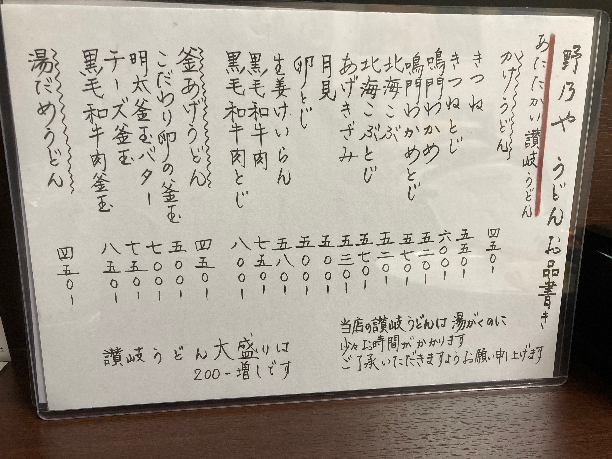 野乃や うどんお品書き
あたたかい讃岐うどん
かけうどん 四五〇-
きつね 五五〇-
きつねとじ 六〇〇-
鳴門わかめ 五二〇-
鳴門わかめとじ 五七〇-
北海こぶ 五二〇-
北海こぶとじ 五七〇-
あげきざみ 五三〇-
月見 五〇〇-
卵とじ 五〇〇-
生姜けいらん 五八〇-
黒毛和牛肉 七五〇-
黒毛和牛肉とじ 八〇〇-
釜あげうどん 四五〇-
こだわり卵の釜玉 五〇〇-
明太釜玉バター 七〇〇-
チーズ釜玉 七五〇-
黒毛和牛肉釜玉 八五〇-
湯だめうどん 四五〇-
当店の讃岐うどんは湯がくのに
少々お時間がかかります
ご了承いただきますようお願い申し上げます
讃岐うどん大盛りは
200-増しです